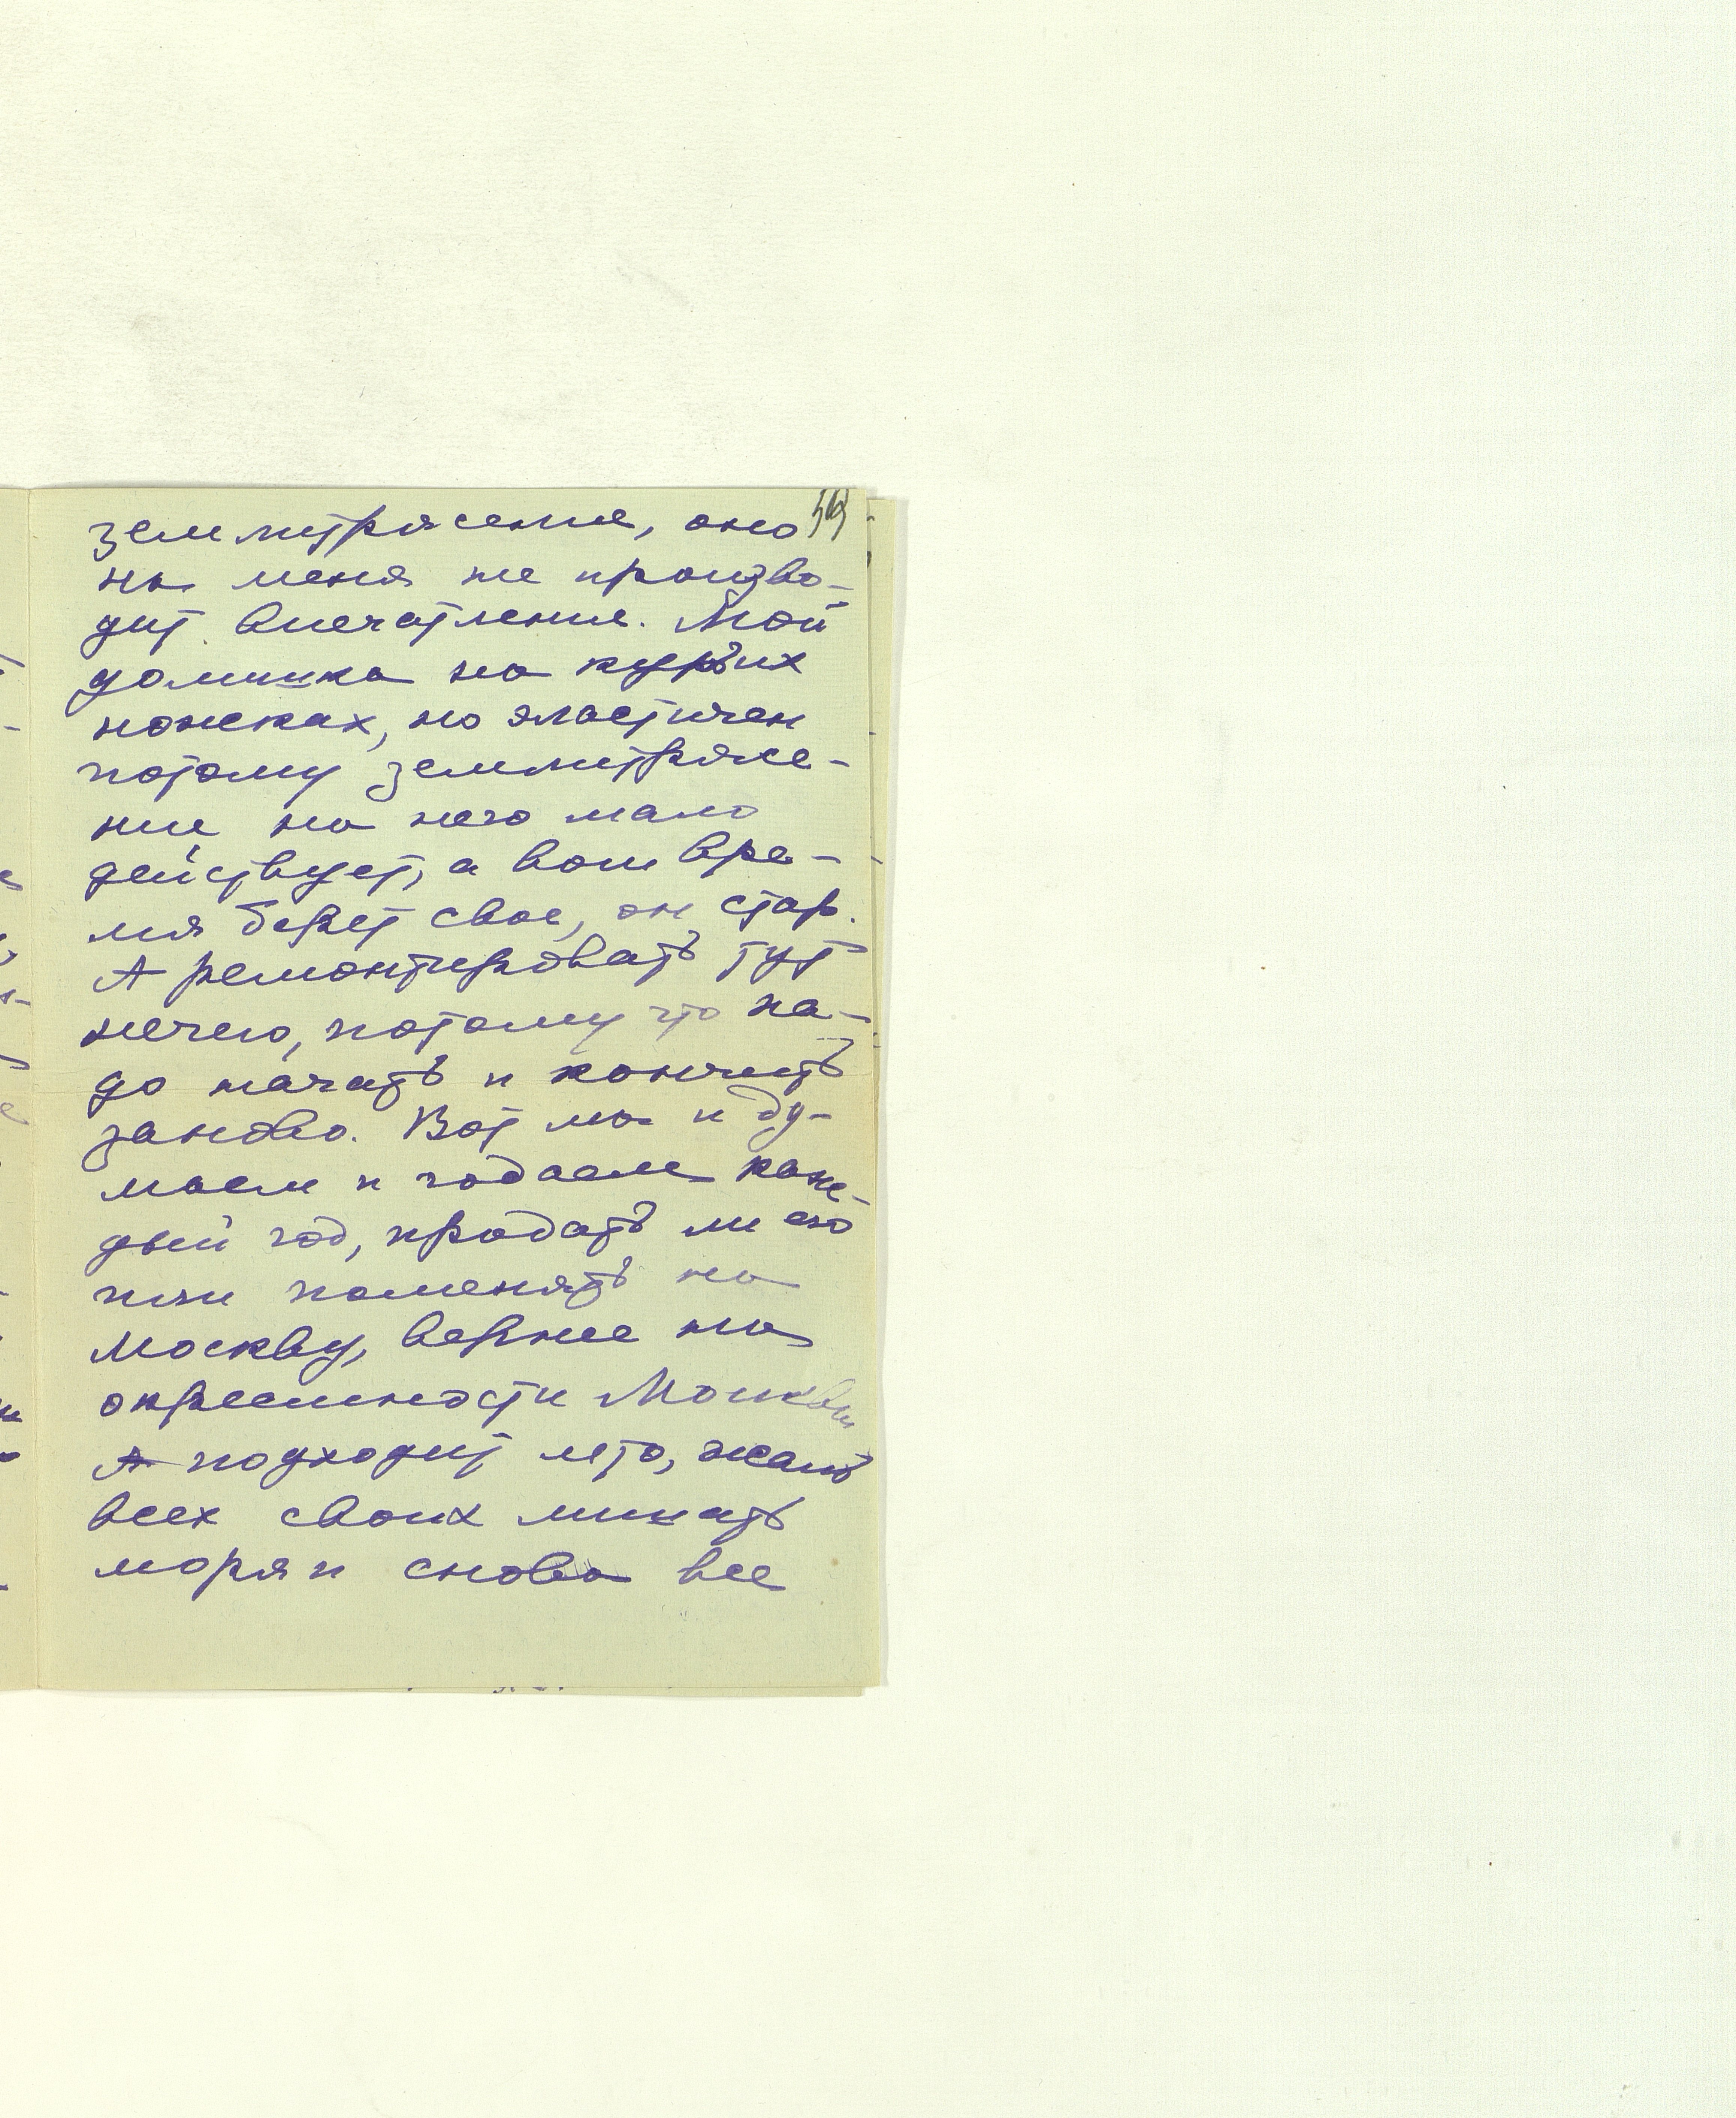 землитрясение, оно
на меня не произво-
дит впечатления. Мой
домишка на курьих
ножках, но эластичен
потому землитрясе-
ние на него мало
действует, а вот вре-
мя берет свое, он стар.
А ремонтировать тут
нечего, потому что на-
до начать и кончить
заново. Вот мы и ду-
маем и гадаем каж-
дый год, продать ли его
или поменять на
Москву, вернее на
окрестности Москвы
А подходит лето, жаль
всех своих лишать
моря и снова все